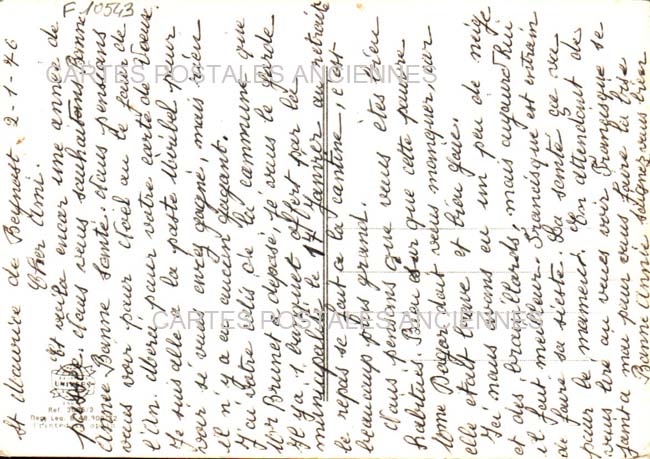 F 10543
St Maurice de Beynost 2-1-76
Cher Ami
Et voila encor une année de
passée. Nous vous souhaitons Bonne
année Bonne Santé. Nous pensions
vous voir pour Noël ou le jour de
l'An. Merci pour votre carte de Voeux.
J'y suis allé a la poste Miribel pour
voir si vous avez gagné, mais rien
il n'y a eu aucun gagnant.
Il y a votre colis de la commune que
Mr Brunet a déposé, je vous le garde.
Il y a 1 banquet offert par la
municipalité le 17 janvier au retraité
le repas se fait a la cantine, c'est
beaucoup plus grand.
Nous pensons que vous êtes bien
habitué. Bien sur que cette pauvre
Mme doit vous manquer, car
elle était brave et bien gaie.
Ici nous avons eu un peu de neige
et des brouillards, mais aujourd'hui
il fait meilleur. Francisque est entrain
de faire sa sieste. Sa santé ça va
pour le moment. En attendant de
vous lire ou vous voir Francisque se
joint a moi pour vous faire la bise
Bonne Année soignez-vous bien
CARTES POSTALES ANCIENNES
CARTES POSTALES ANCIENNES
Ref.